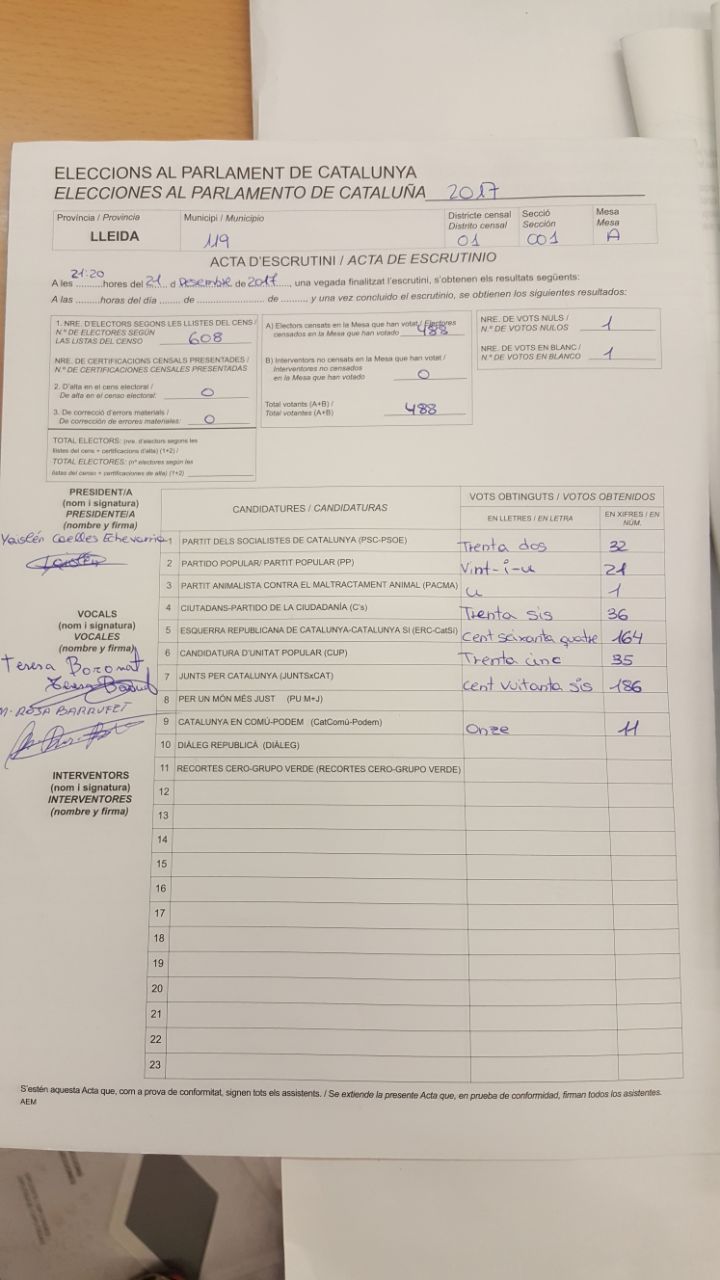 ELECCIONS AL PARLAMENT DE CATALUNYA
ELECCIONES AL PARLAMENTO DE CATALUÑA 2017
Província / Provincia
LLEIDA
Municipi / Municipio
119
Districte censal
Distrito censal
01
Secció
Sección
001
Mesa
Mesa
A
ACTA D'ESCRUTINI / ACTA DE ESCRUTINIO
21:20
A les ..........hores del 21 d Desembre de 2017......, una vegada finalitzat l'escrutini, s'obtenen els resultats següents:
A las .........horas del día ....... de ......................... de ......... y una vez concluido el escrutinio, se obtienen los siguientes resultados:
1. NRE. D'ELECTORS SEGONS LES LLISTES DEL CENS /
N.º DE ELECTORES SEGÚN
LAS LISTAS DEL CENSO 608
NRE. DE CERTIFICACIONS CENSALS PRESENTADES /
N.º DE CERTIFICACIONES CENSALES PRESENTADAS
2. D'alta en el cens electoral /
De alta en el censo electoral: 0
3. De correcció d'errors materials /
De corrección de errores materiales: 0
TOTAL ELECTORS: (nre. d'electors segons les
llistes del cens + certificacions d'alta) (1+2) /
TOTAL ELECTORES: (nº electores según les
listas del censo + certificaciones de alta) (1+2)
A) Electors censats en la Mesa que han votat / Electores
censados en la Mesa que han votado 488
B) Interventors no censats en la Mesa que han votat /
Interventores no censados
en la Mesa que han votado 0
Total votants (A+B) /
Total votantes (A+B) 488
NRE. DE VOTS NULS /
N.º DE VOTOS NULOS 1
NRE. DE VOTS EN BLANC /
N.º DE VOTOS EN BLANCO 1
PRESIDENT/A
(nom i signatura)
PRESIDENTE/A
(nombre y firma)
Echevarria
VOCALS
(nom i signatura)
VOCALES
(nombre y firma)
Teresa Boronat
M. ROSA BARRUFET
INTERVENTORS
(nom i signatura)
INTERVENTORES
(nombre y firma)
CANDIDATURES / CANDIDATURAS
VOTS OBTINGUTS / VOTOS OBTENIDOS
EN LLETRES / EN LETRA
EN XIFRES / EN NÚM.
1 PARTIT DELS SOCIALISTES DE CATALUNYA (PSC-PSOE) Trenta dos 32
2 PARTIDO POPULAR/ PARTIT POPULAR (PP) Vint-i-u 21
3 PARTIT ANIMALISTA CONTRA EL MALTRACTAMENT ANIMAL (PACMA) u 1
4 CIUTADANS-PARTIDO DE LA CIUDADANÍA (C's) Trenta sis 36
5 ESQUERRA REPUBLICANA DE CATALUNYA-CATALUNYA SI (ERC-CatSí) Cent seixanta quatre 164
6 CANDIDATURA D'UNITAT POPULAR (CUP) Trenta cinc 35
7 JUNTS PER CATALUNYA (JUNTSxCAT) Cent vuitanta sis 186
8 PER UN MÓN MÉS JUST (PU M+J)
9 CATALUNYA EN COMÚ-PODEM (CatComú-Podem) Onze 11
10 DIÀLEG REPUBLICÀ (DIÀLEG)
11 RECORTES CERO-GRUPO VERDE (RECORTES CERO-GRUPO VERDE)
12
13
14
15
16
17
18
19
20
21
22
23
S'estén aquesta Acta que, com a prova de conformitat, signen tots els assistents. / Se extiende la presente Acta que, en prueba de conformidad, firman todos los asistentes.
AEM